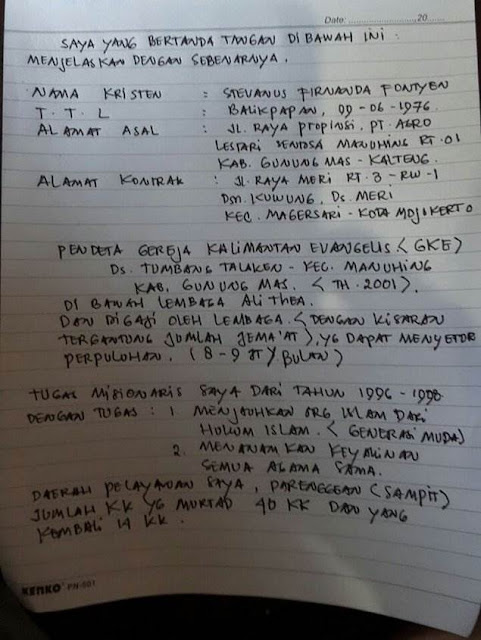 Date: 20
SAYA YANG BERTANDA TANGAN DI BAWAH INI :
MENJELASKAN DENGAN SEBENARNYA.
NAMA KRISTEN : STEVANUS FIRNANDA FONTYEN
T. T. L : BALIKPAPAN, 09-06-1976.
ALAMAT ASAL : JL. RAYA PROPINSI, PT. AGRO
LESTARI SENTOSA MANUHING RT. 01
KAB. GUNUNG MAS - KALTENG.
ALAMAT KONTRAK : JL. RAYA MERI RT. 3 - RW - 1
DSN. KUWUNG, DS. MERI
KEC. MAGERSARI - KOTA MOJOKERTO
PENDETA GEREJA KALIMANTAN EVANGELIS < GKE )
DS. TUMBANG TALAKEN - KEC. MANUHING
KAB. GUNUNG MAS. < TH. 2001 ).
DI BAWAH LEMBAGA ALITHEA.
DAN DIGAJI OLEH LEMBAGA. < DENGAN KISARAN
TERGANTUNG JUMLAH JEMA'AT ), YG DAPAT MENYETOR
PERPULUHAN. ( 8 - 9 JT / BULAN )
TUGAS MISIONARIS SAYA DARI TAHUN 1996 - 1998
DENGAN TUGAS : 1 MENJAUHKAN ORG ISLAM DARI
HUKUM ISLAM. < GENERASI MUDA)
2. MENANAMKAN KEYAKINAN
SEMUA AGAMA SAMA.
DAERAH PELAYANAN SAYA, PARENGGEAN ( SAMPIT )
JUMLAH KK YG MURTAD 40 KK DAN YANG
KEMBALI 14 KK.
KENKO PN-501